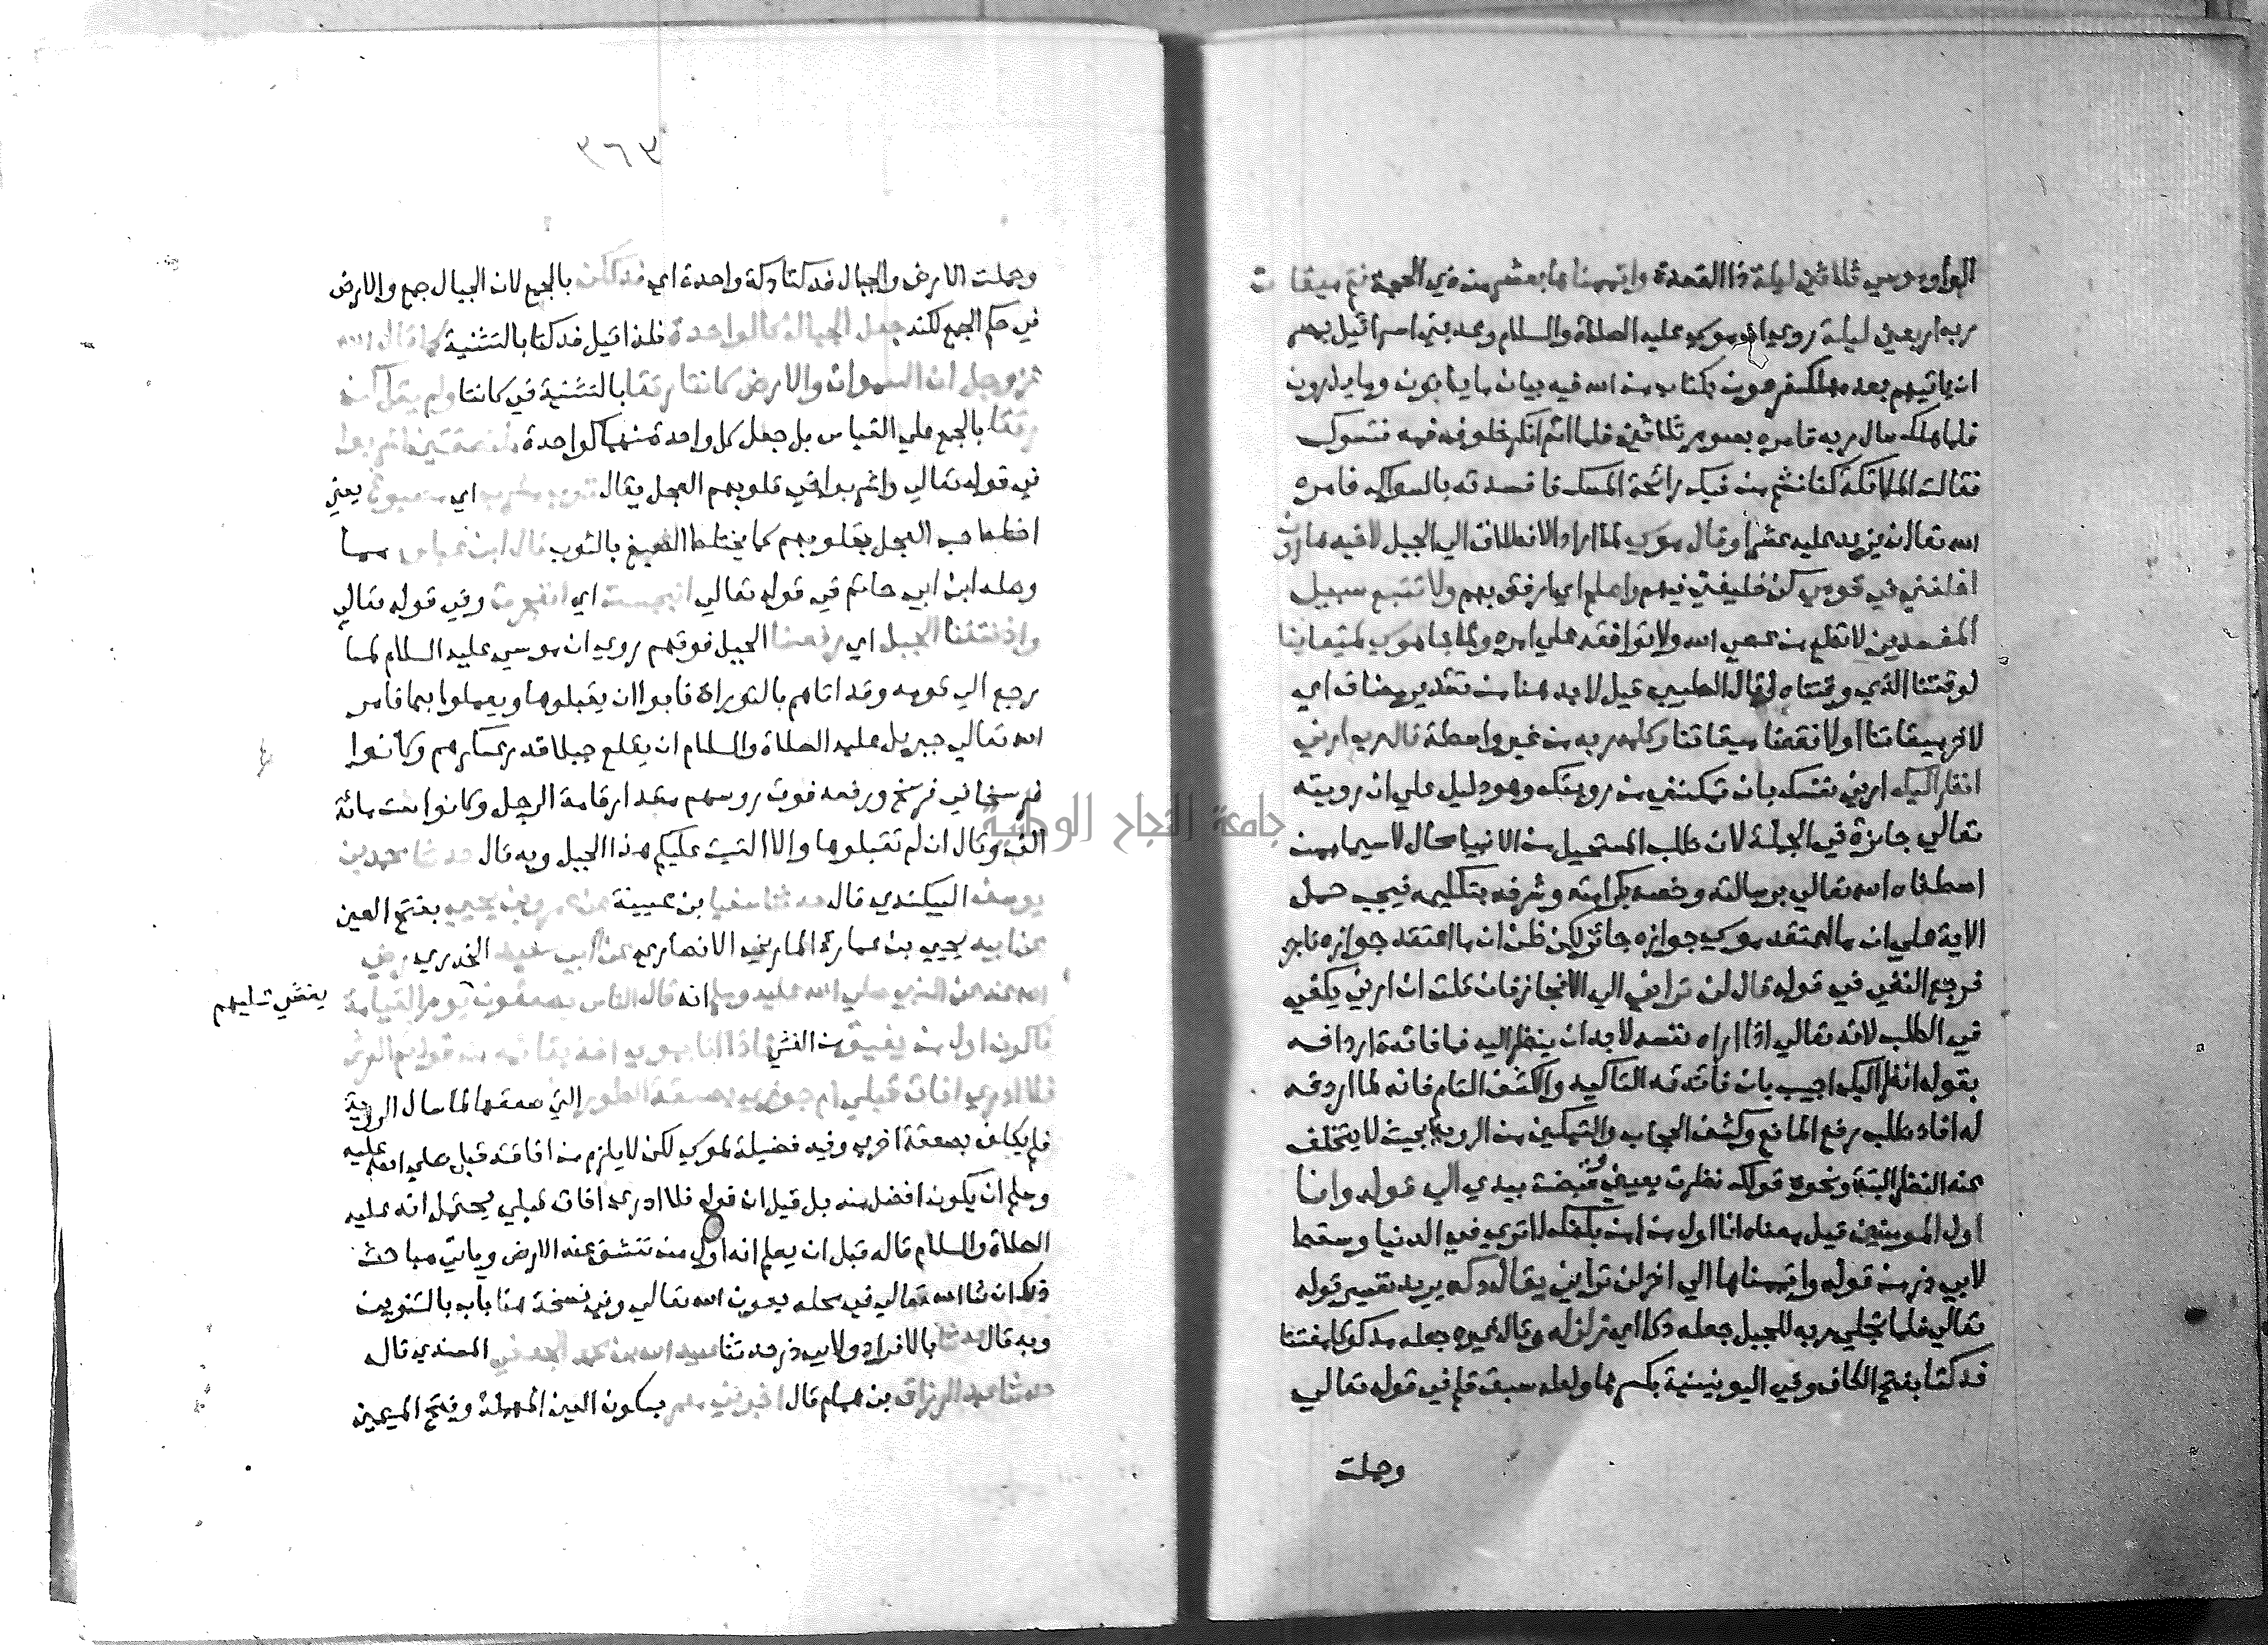 الواو موسي ثلاثين ليلة ذا القعدة واتممناها بعشر من ذي الحجة فتم ميقات
ربه اربعين ليلة روي ان موسي عليه الصلاة والسلام وعد بني اسرائيل بمصر
ان ياتيهم بعد مهلك فرعون بكتاب من الله فيه بيان ما ياتون وما يذرون
فلما هلك سال ربه فامره بصوم ثلاثين فلما اتم انكر خلوف فمه فتسوك
فقالت الملائكة كنا نشم من فيك رائحة المسك فافسدته بالسواك فامره
الله تعالي ان يزيد عليه عشرا وقال موسي لما اراد الانطلاق الي الجبل لاخيه هارون
اخلفني في قومي كن خليفتي فيهم واصلح اي ارفق بهم ولا تتبع سبيل
المفسدين لا تطع من عصي الله ولا توافقه علي امره ولما جا موسي لميقاتنا
لوقتنا الذي وقتناه قال الطيبي قيل لا بد هنا من تقدير مضاف اي
لاخر ميقاتنا او لانقضا ميقاتنا وكلمه ربه من غير واسطة قال رب ارني
انظر اليك ارني نفسك بان تمكنني من رويتك وهو دليل علي ان رويته
تعالي جائزة في الجملة لان طلب المستحيل من الانبيا محال لا سيما من
اصطفاه الله تعالي برسالته وخصه بكرامته وشرفه بتكليمه فيجب حمل
الاية علي ان ما اعتقد موسي جوازه جائز لكن ظن ان ما اعتقد جوازه ناجز
فرجع النفي في قوله قال لن تراني الي الانجاز فان قلت ان ارني يكفي
في الطلب لانه تعالي اذا اراه نفسه لا بد ان ينظر اليه فما فائدة اردافه
بقوله انظر اليك اجيب بان فائدته التاكيد والكشف التام فانه لما اردفه
له افاد طلب رفع المانع وكشف الحجاب والتمكين من الروية بحيث لا يتخلف
عنه النظر البتة ونحوه قولك نظرت بعيني وقبضت بيدي الي قوله وانا
اول المومنين قيل معناه انا اول من امن بانك لا تري في الدنيا وسقط
لابي ذر من قوله واتممناها الي اخر لن تراني يقال دكه يريد تفسير قوله
تعالي فلما تجلي ربه للجبل جعله دكا اي زلزله وقال غيره جعله مدكوكا مفتتا
فدكتا بفتح الكاف وفي اليونينية بكسرها ولعله سبق قلم في قوله تعالي
وحملت
٣٦٣
وحملت الارض والجبال فدكتا دكة واحدة اي فدككن بالجمع لان الجبال جمع والارض
في حكم الجمع لكنه جعل الجبال كالواحدة فلذا قيل فدكتا بالتثنية كما قال الله
عز وجل ان السموات والارض كانتا رتقا بالتثنية في كانتا ولم يقل كن
رتقا بالجمع علي القياس بل جعل كل واحدة منهما كواحدة ملتصقتين اشربوا
في قوله تعالي واشربوا في قلوبهم العجل يقال ثوب مشرب اي مصبوغ يعني
اختلط حب العجل بقلوبهم كما يختلط الصبغ بالثوب قال ابن عباس مما
وصله ابن ابي حاتم في قوله تعالي انبجست اي انفجرت وفي قوله تعالي
واذ نتقنا الجبل اي رفعنا الجبل فوقهم روي ان موسي عليه السلام لما
رجع الي قومه وقد اتاهم بالتوراة فابوا ان يقبلوها ويعملوا بما فامر
الله تعالي جبريل عليه الصلاة والسلام ان يقلع جبلا قدر عسكرهم وكانوا
فرسخا في فرسخ ورفعه فوق روسهم مقدار قامة الرجل وكانوا ست مائة
الف وقال ان لم تقبلوها والا القيت عليكم هذا الجبل وبه قال حدثنا محمد بن
يوسف البيكندي قال حدثنا سفيان بن عيينة عن عمرو بن يحيي بفتح العين
عن ابيه يحيي بن عمارة المازني الانصاري عن ابي سعيد الخدري رضي
الله عنه عن النبي صلي الله عليه وسلم انه قال الناس يصعقون يوم القيامة
يغشي عليهم
فاكون اول من يفيق من الغشي فاذا انا بموسي اخذ بقائمة من قوائم العرش
فلا ادري افاق قبلي ام جوزي بصعقة الطور التي صعقها لما سال الروية
فلم يكلف بصعقة اخري وفيه فضيلة لموسي لكن لا يلزم من افاقته قبل صلي الله عليه
وسلم ان يكون افضل منه بل قيل ان قوله فلا ادري افاق قبلي يحتمل انه عليه
الصلاة والسلام قاله قبل ان يعلم انه اول من تنشق عنه الارض وياتي مباحث
ذلك ان شا الله تعالي في محله بعون الله تعالي وفي نسخة هنا باب بالتنوين
وبه قال حدثنا بالافراد ولابي ذر حدثنا عبد الله بن محمد الجعفي المسندي قال
حدثنا عبد الرزاق بن همام قال اخبرنا معمر بسكون العين المهملة وفتح الميمين
جامعة النجاح الوطنية